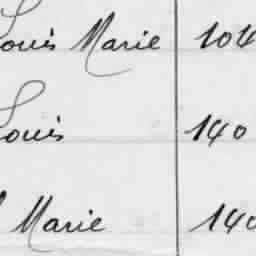 Louis Marie 104
Louis 140
Marie 140